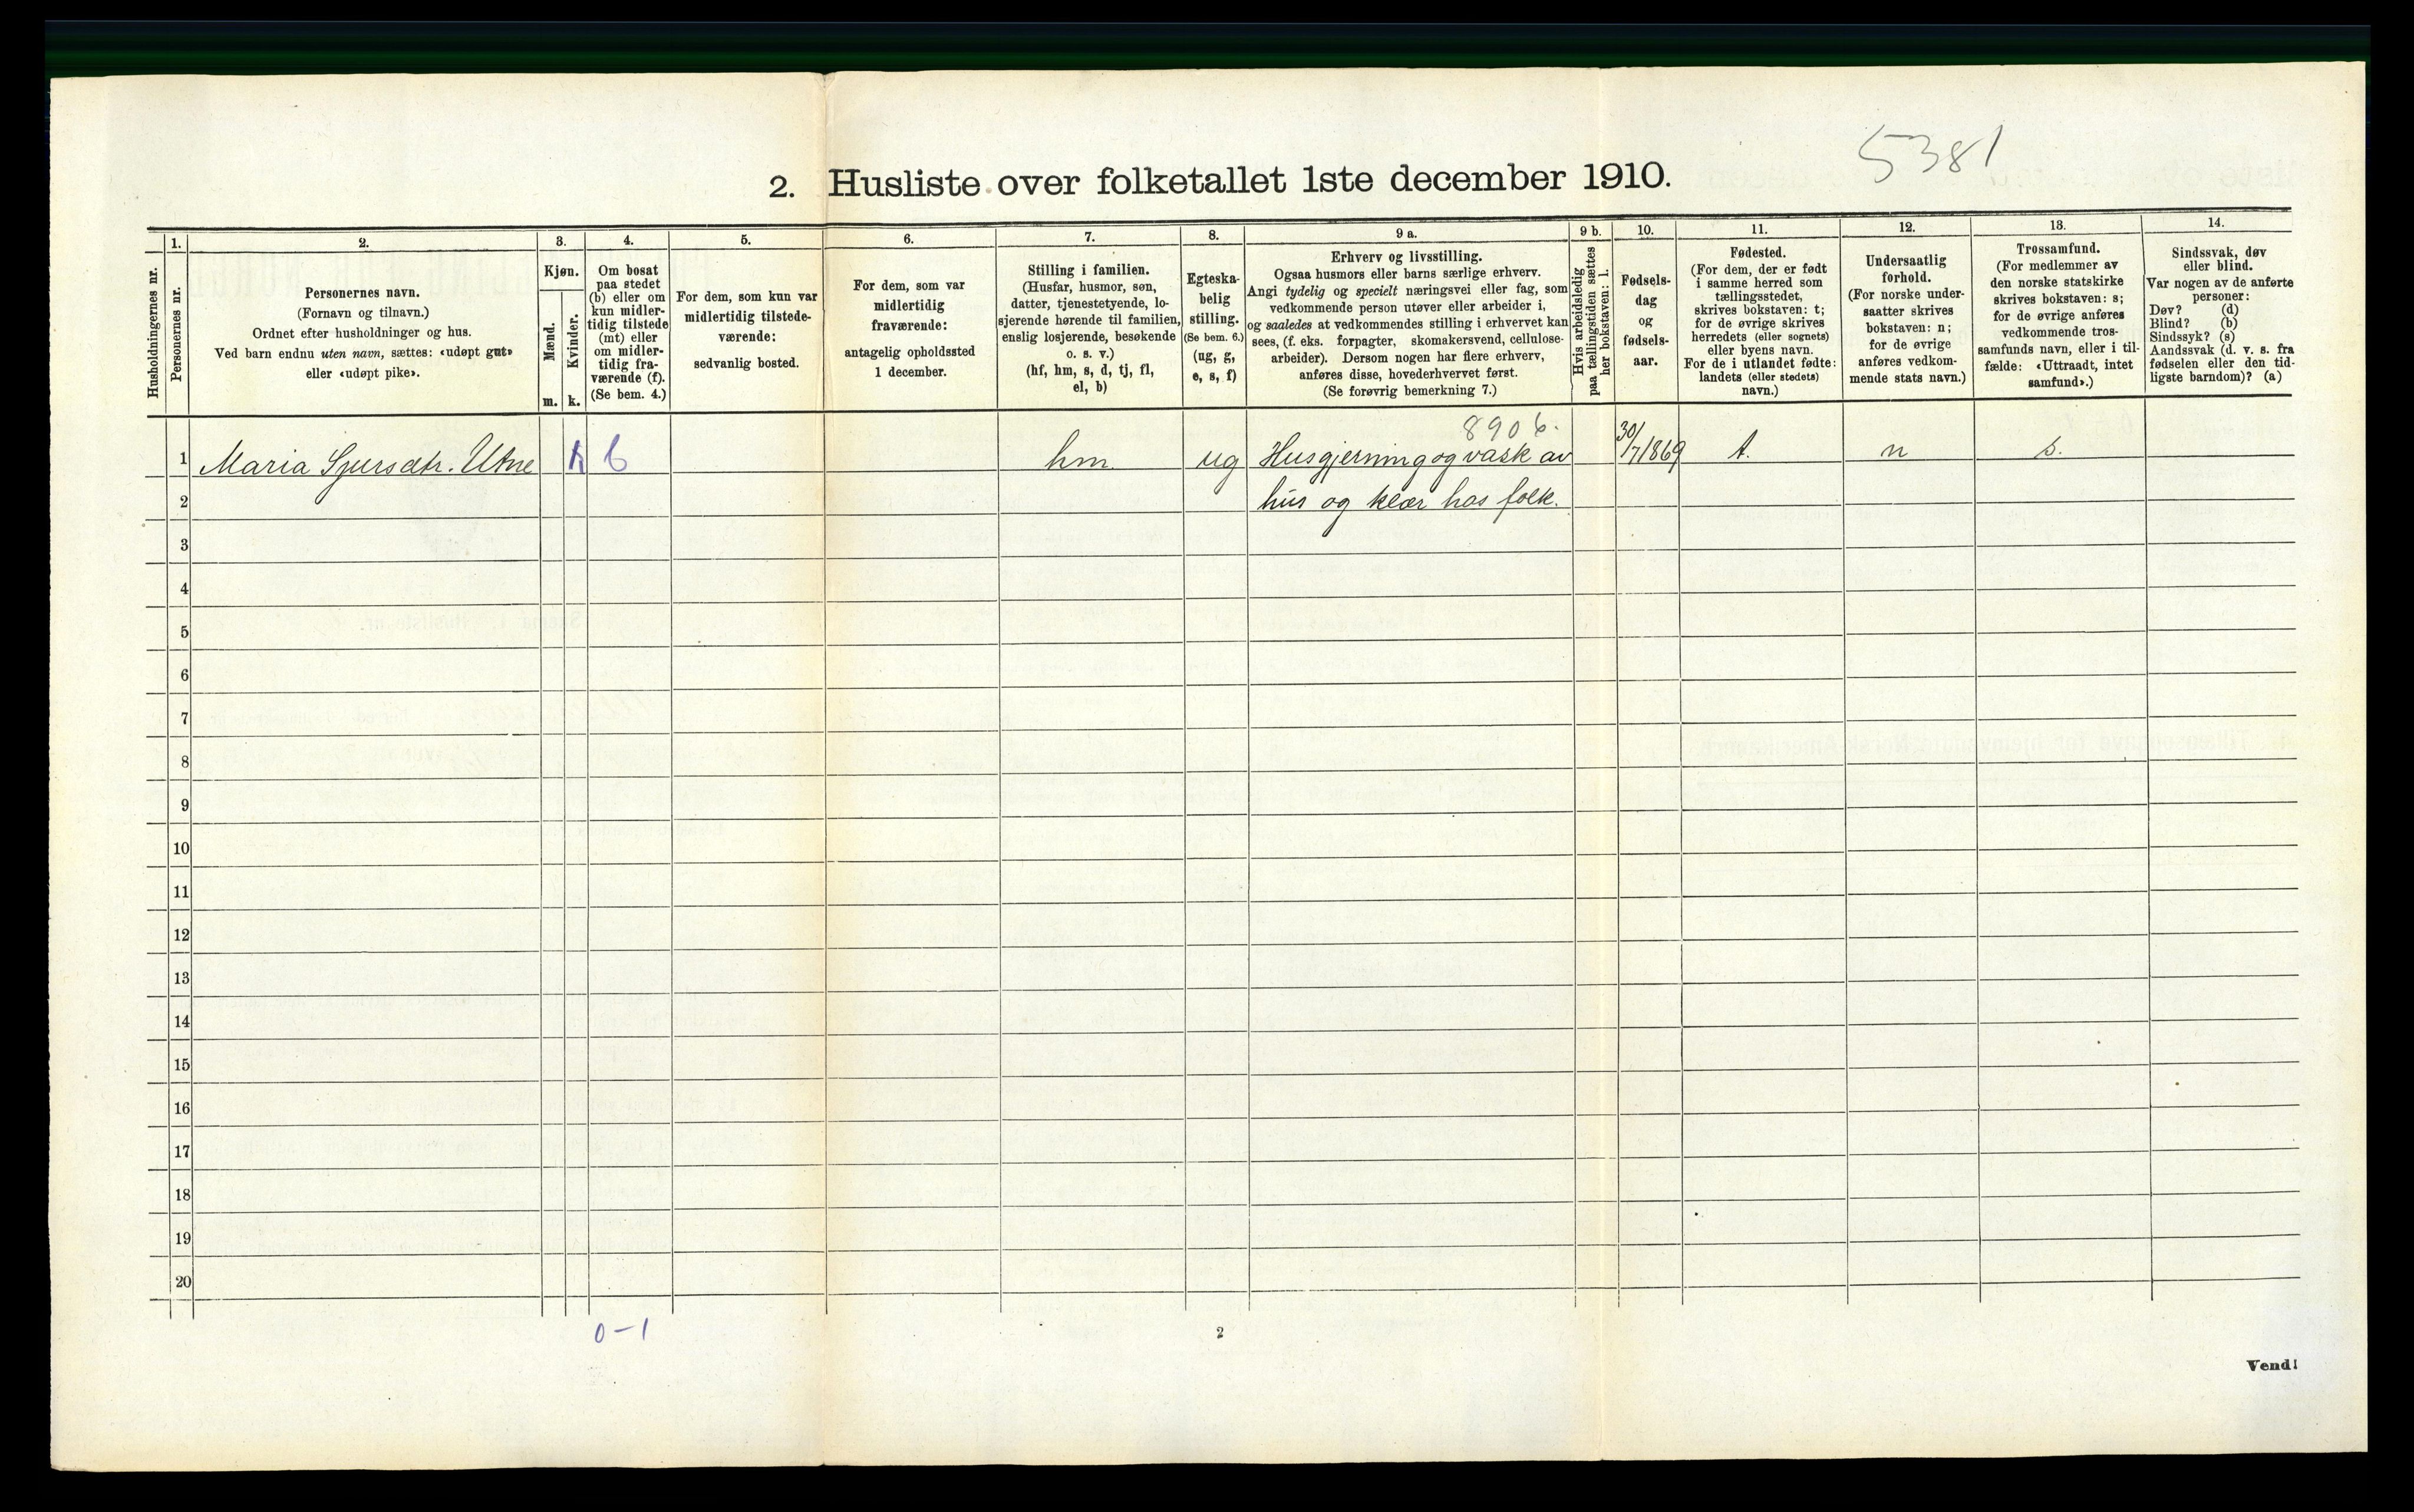 5381
2. Husliste over folketallet 1ste december 1910.
Husholdningernes nr.
1.
Personernes nr.
2.
Personernes navn.
(Fornavn og tilnavn.)
Ordnet efter husholdninger og hus.
Ved barn endnu uten navn, sættes: «udøpt gut»
eller «udøpt pike».
3.
Kjøn.
Mænd.
Kvinder.
m.
k.
4.
Om bosat
paa stedet
(b) eller om
kun midler-
tidig tilstede
(mt) eller
om midler-
tidig fra-
værende (f).
(Se bem. 4.)
5.
For dem, som kun var
midlertidig tilstede-
værende:
sedvanlig bosted.
6.
For dem, som var
midlertidig
fraværende:
antagelig opholdssted
1 december.
7.
Stilling i familien.
(Husfar, husmor, søn,
datter, tjenestetyende, lo-
sjerende hørende til familien,
enslig losjerende, besøkende
o. s. v.)
(hf, hm, s, d, tj, fl,
el, b)
8.
Egteska-
belig
stilling.
(Se bem. 6.)
(ug, g,
e, s, f)
9 a.
Erhverv og livsstilling.
Ogsaa husmors eller barns særlige erhverv.
Angi tydelig og specielt næringsvei eller fag, som
vedkommende person utøver eller arbeider i,
og saaledes at vedkommendes stilling i erhvervet kan
sees, (f. eks. forpagter, skomakersvend, cellulose-
arbeider). Dersom nogen har flere erhverv,
anføres disse, hovederhvervet først.
(Se forøvrig bemerkning 7.)
9 b.
Hvis arbeidsledig
paa tællingstiden sættes
her bokstaven: l.
10.
Fødsels-
dag
og
fødsels-
aar.
11.
Fødested.
(For dem, der er født
i samme herred som
tællingsstedet,
skrives bokstaven: t;
for de øvrige skrives
herredets (eller sognets)
eller byens navn.
For de i utlandet fødte:
landets (eller stedets)
navn.)
12.
Undersaatlig
forhold.
(For norske under-
saatter skrives
bokstaven: n;
for de øvrige
anføres vedkom-
mende stats navn.)
13.
Trossamfund.
(For medlemmer av
den norske statskirke
skrives bokstaven: s;
for de øvrige anføres
vedkommende tros-
samfunds navn, eller i til-
fælde: «Uttraadt, intet
samfund».)
14.
Sindssvak, døv
eller blind.
Var nogen av de anførte
personer:
Døv? (d)
Blind? (b)
Sindssyk? (s)
Aandssvak (d. v. s. fra
fødselen eller den tid-
ligste barndom)? (a)
8906.
1 Maria Sjursdtr. Utne k b hm. ug Husgjerning og vask av 30/7 1869 t. n s.
2 hus og klær hos folk.
3
4
5
6
7
8
9
10
11
12
13
14
15
16
17
18
19
20
0-1
2
Vend!